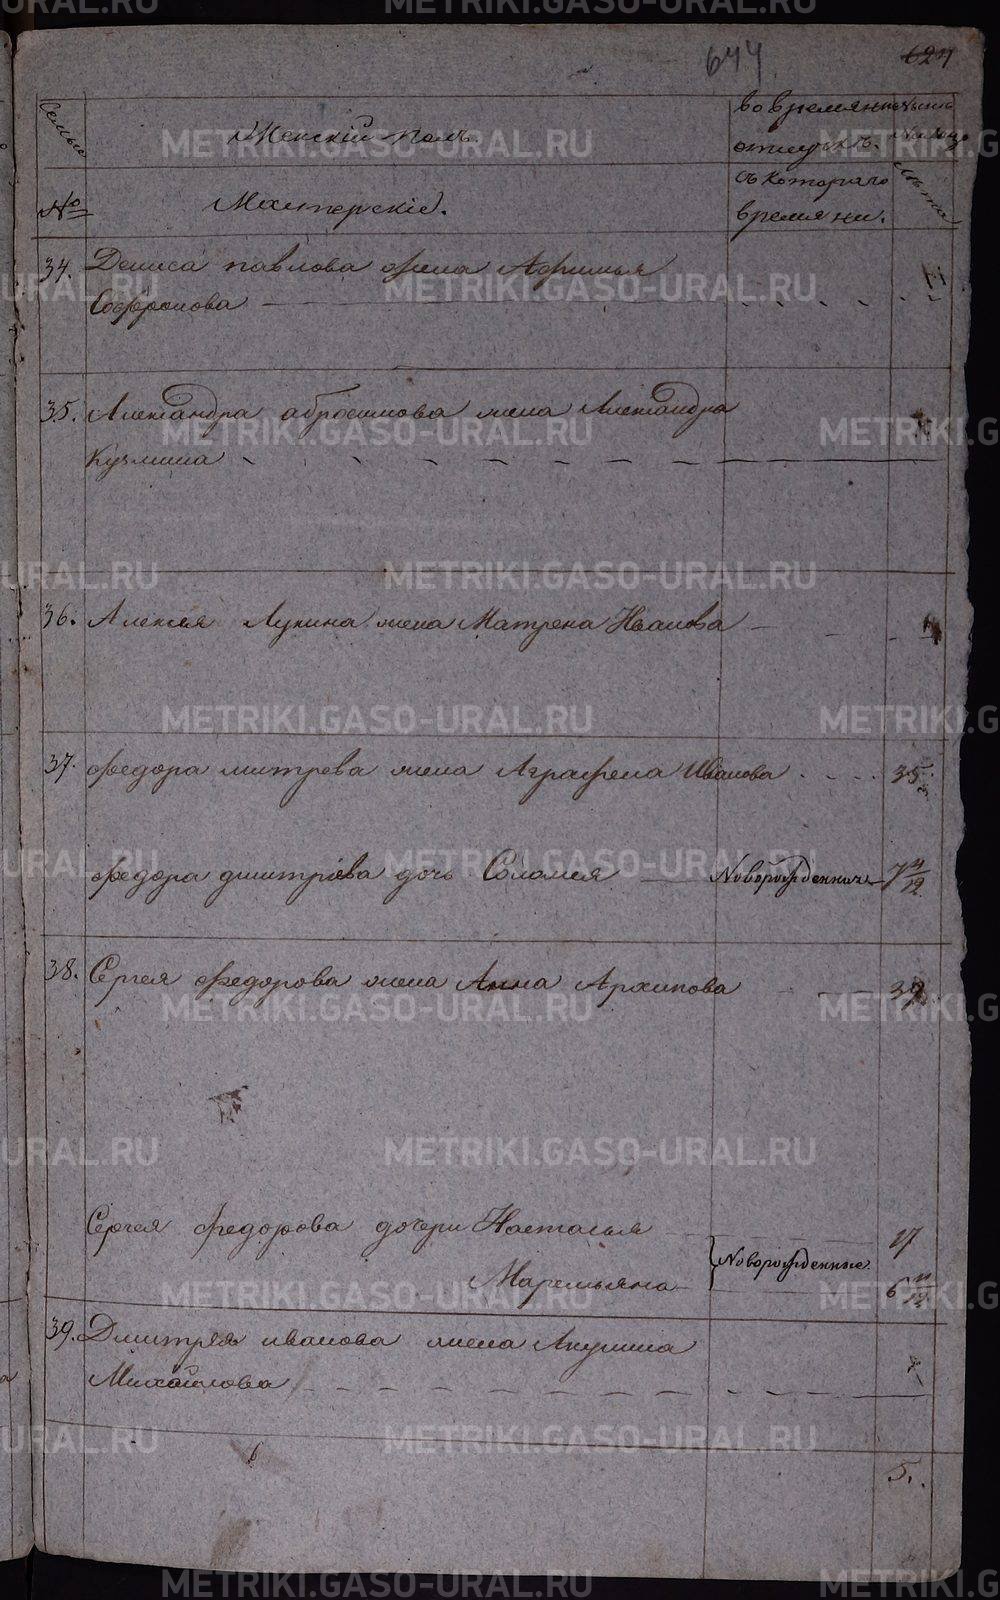 644
624
Семьи
Женскій полъ
во время
отлучкѣ.
Мастерскіе.
съ котораго
времяни.
Лѣта
№
34. Дениса павлова жена Афимья
Софронова
35. Александра абросимова жена Александра
Кузмина
36. Алексѣя Лукина жена Матрена Иванова
37. Федора митрева жена Аграфена Иванова 35
Федора дмитрева дочь Соломея Новорожденная 7 4/12
38. Сергея Федорова жена Анна Архипова 39
Сергея Федорова дочери Настасья 17
Новорожденные
Маремьяна 6 11/12
39. Дмитрея иванова жена Акулина
Михайлова
6
5.
METRIKI.GASO-URAL.RU